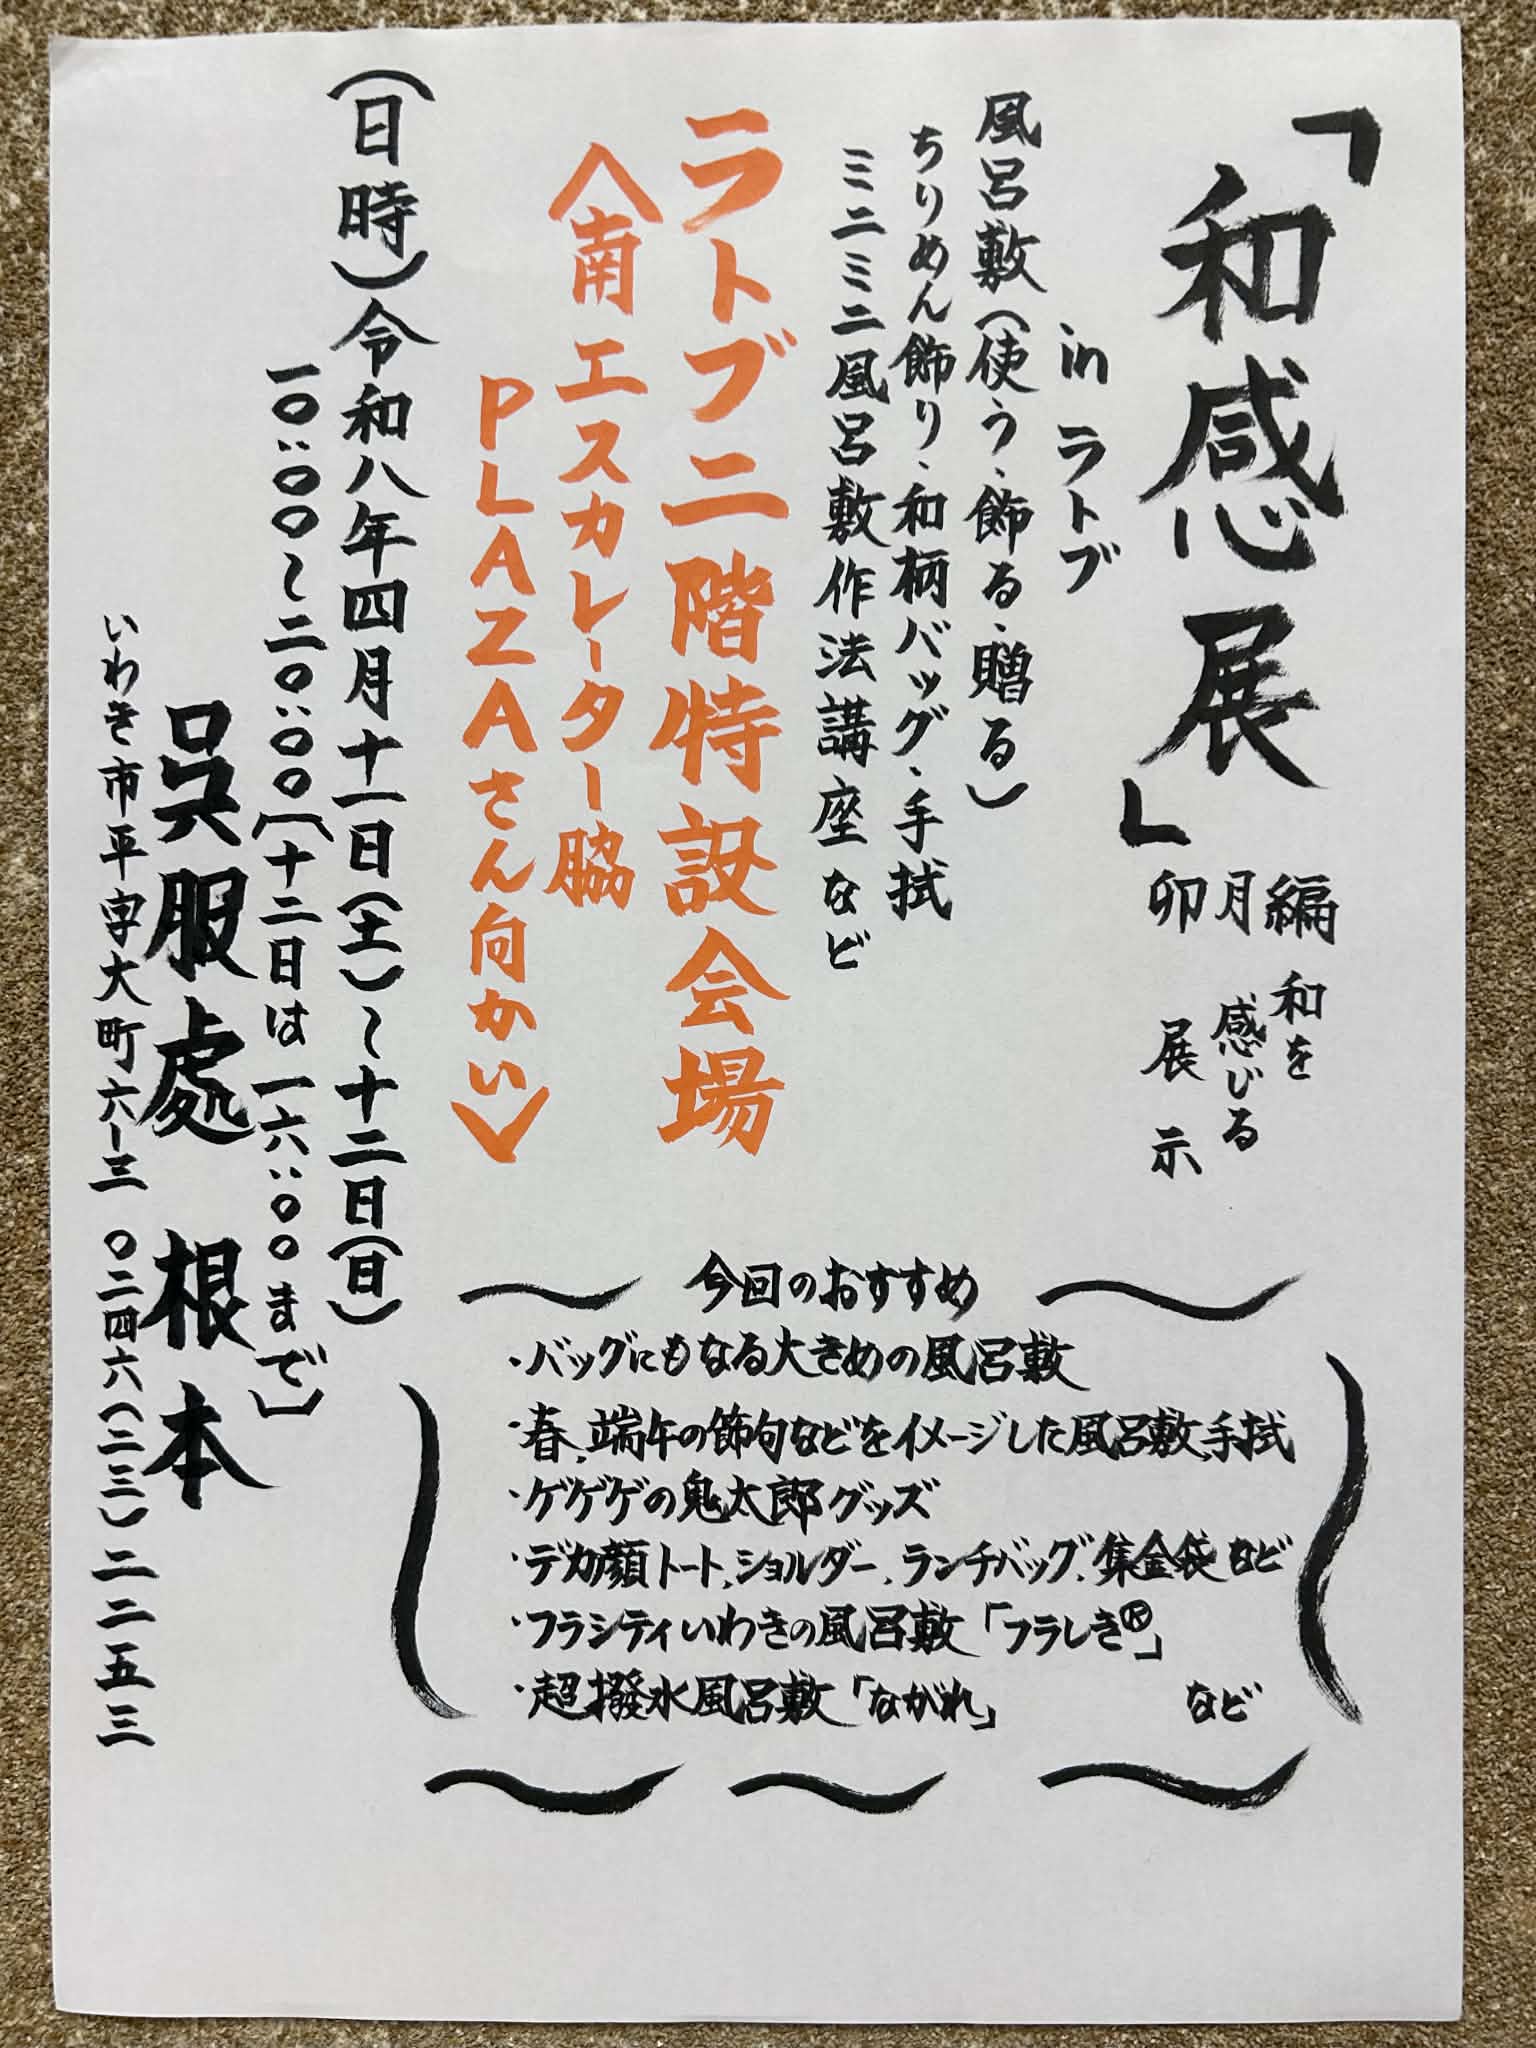 「和感展」
卯月編
和を感じる展示
in ラトブ
風呂敷(使う・飾る・贈る)
ちりめん飾り・和柄バッグ・手拭
ミニミニ風呂敷作法講座など
ラトブ二階特設会場
〈南エスカレーター脇
PLAZAさん向かい〉
(日時)令和八年四月十一日(土)～十二日(日)
一〇:〇〇～二〇:〇〇〔十二日は一六:〇〇まで〕
呉服處 根本
いわき市平字大町六-三 〇二四六(二三)二二五三
今回のおすすめ
・バッグにもなる大きめの風呂敷
・春、端午の節句などをイメージした風呂敷、手拭
・ゲゲゲの鬼太郎グッズ
・デカ顔トート、ショルダー、ランチバッグ、集金袋など
・フラシティいわきの風呂敷「フラしき®」
・超撥水風呂敷「ながれ」 など